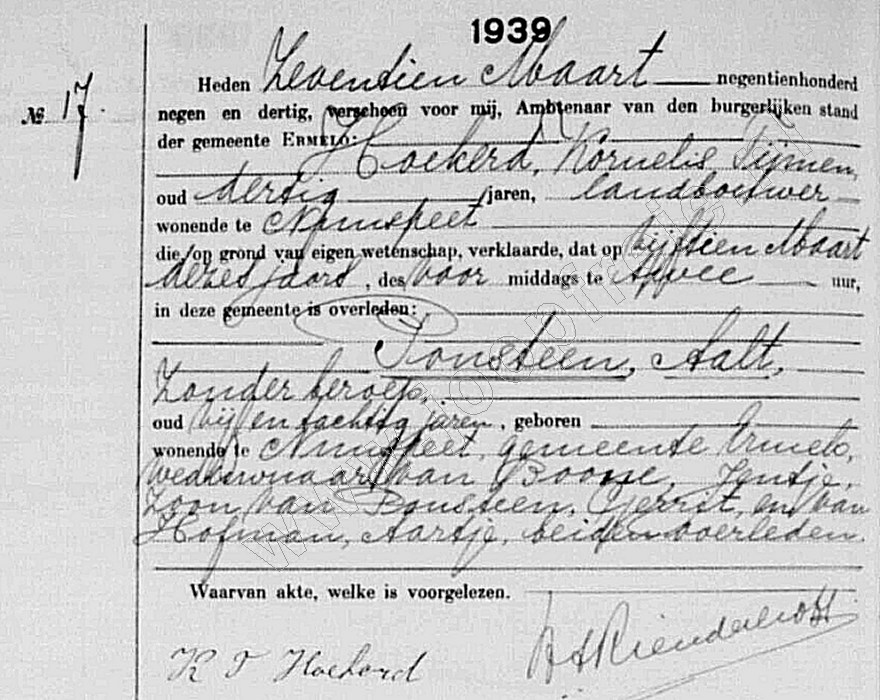 1939
Heden Zeventien Maart negentienhonderd
№ 17.
negen en dertig, verscheen voor mij, Ambtenaar van den burgerlijken stand
der gemeente ERMELO:
Hoekerd, Kornelis Tijmen,
oud dertig jaren, landbouwer
wonende te Nunspeet
die op grond van eigen wetenschap, verklaarde, dat op vijftien Maart
dezes jaars, des voor middags te twee uur,
in deze gemeente is overleden:
Ponsteen, Aalt,
zonder beroep,
oud vijf en tachtig jaren, geboren
wonende te Nunspeet, gemeente Ermelo,
weduwnaar van Boone, Jentje,
zoon van Ponsteen, Gerrit, en van
Hofman, Aartje, beiden overleden.
Waarvan akte, welke is voorgelezen.
K T Hoekerd